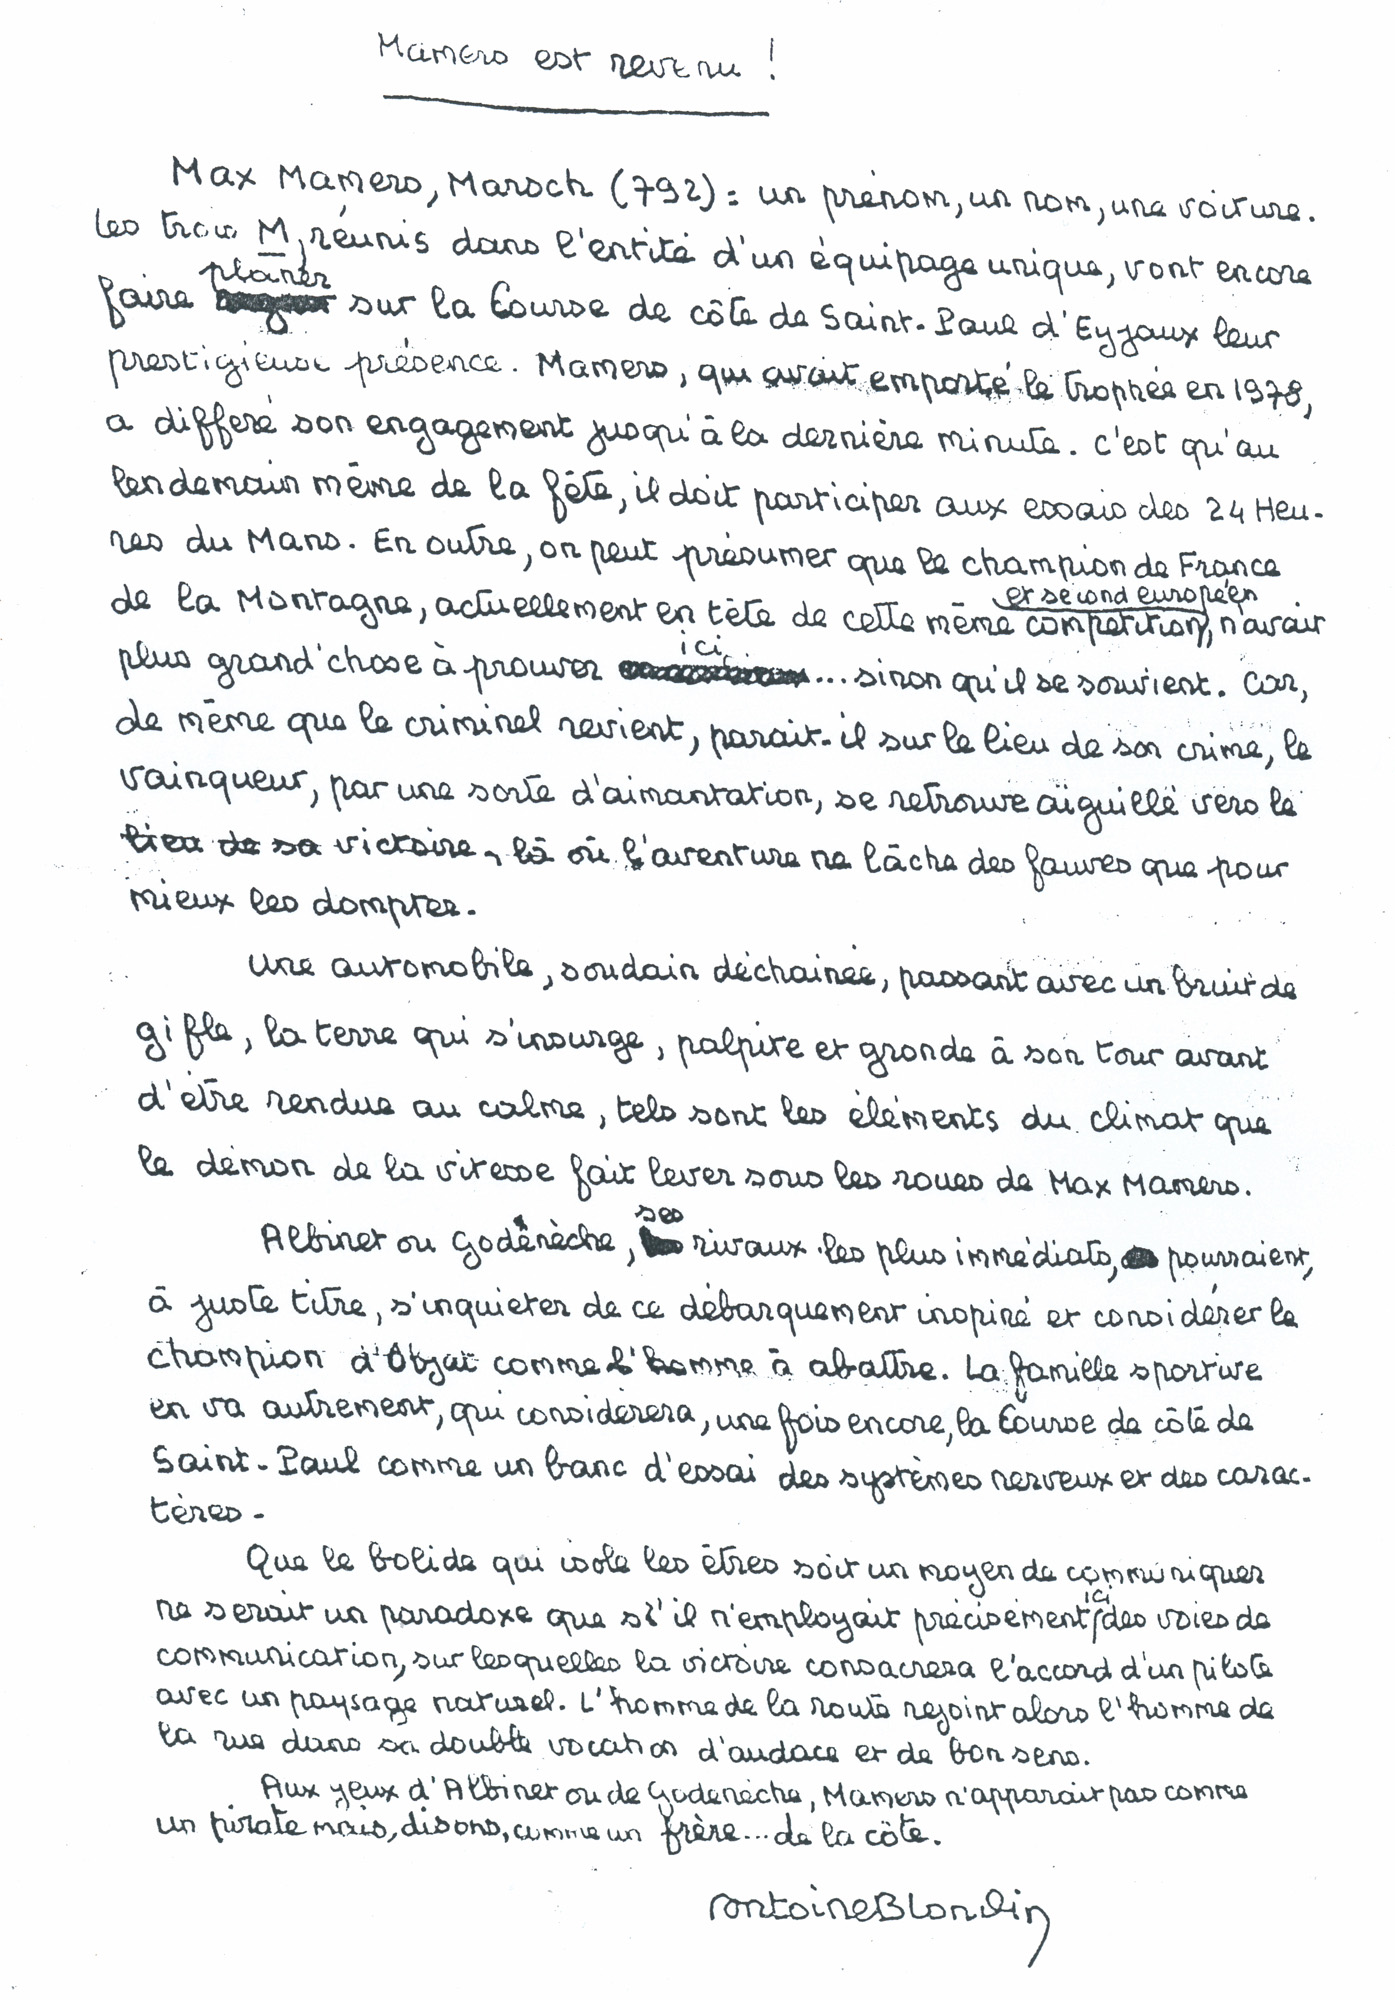 Mamers est revenu !
Max Mamers, Marsch (792) : un prénom, un nom, une voiture.
Les trois M, réunis dans l'entité d'un équipage unique, vont encore
planer
faire sur la Course de côte de Saint-Paul d'Eyjaux leur
prestigieuse présence. Mamers, qui avait emporté le trophée en 1978,
a différé son engagement jusqu'à la dernière minute. C'est qu'au
lendemain même de la fête, il doit participer aux essais des 24 Heu-
res du Mans. En outre, on peut présumer que le champion de France
et second européen
de la Montagne, actuellement en tête de cette même compétition, n'avait
ici
plus grand'chose à prouver ... sinon qu'il se souvient. Car,
de même que le criminel revient, parait-il sur le lieu de son crime, le
vainqueur, par une sorte d'aimantation, se retrouve aiguillé vers le
lieu de sa victoire, là où l'aventure ne lâche des fauves que pour
mieux les dompter.
Une automobile, soudain déchainée, passant avec un bruit de
gifle, la terre qui s'insurge, palpite et gronde à son tour avant
d'être rendue au calme, tels sont les éléments du climat que
le démon de la vitesse fait lever sous les roues de Max Mamers.
ses
Albinet ou Godenèche, rivaux les plus immédiats, pourraient,
à juste titre, s'inquieter de ce débarquement inopiné et considérer le
champion d'Objat comme l'homme à abattre. La famille sportive
en va autrement, qui considèrera, une fois encore, la Course de côte de
Saint-Paul comme un banc d'essai des systèmes nerveux et des carac-
tères.
Que le bolide qui isole les êtres soit un moyen de communiquer
ici
ne serait un paradoxe que s'il n'employait précisément des voies de
communication, sur lesquelles la victoire consacrera l'accord d'un pilote
avec un paysage naturel. L'homme de la route rejoint alors l'homme de
la rue dans sa double vocation d'audace et de bon sens.
Aux yeux d'Albinet ou de Godenèche, Mamers n'apparait pas comme
un pirate mais, disons, comme un frère... de la côte.
Antoine Blondin